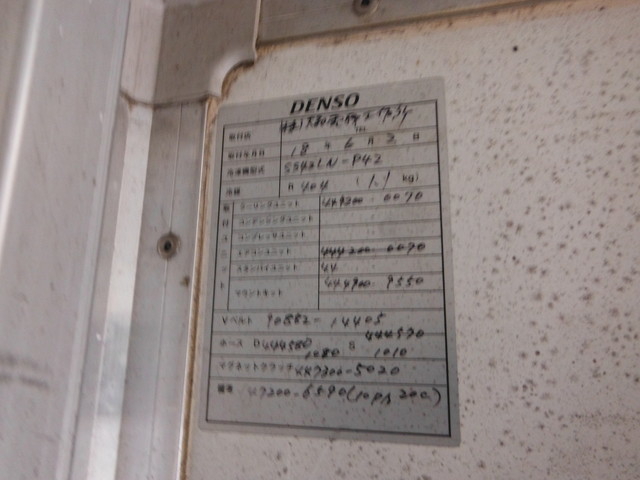 DENSO
取付店
取付年月日 18 年 6 月 2 日
冷凍機型式 SS42LN-P42
冷媒 R 404 (1.1 kg)
クーリングユニット 449200-0070
コンデンシングユニット
コンプレッサユニット
エアコンユニット 444200-0090
スタンバイユニット 44
マウントキット 444900-9550
Vベルト 90882-14405
ホース D 444580 S 444570
1080 1010
マグネットクラッチ 447300-5020
備考 47200-6590 (10PA 20C)